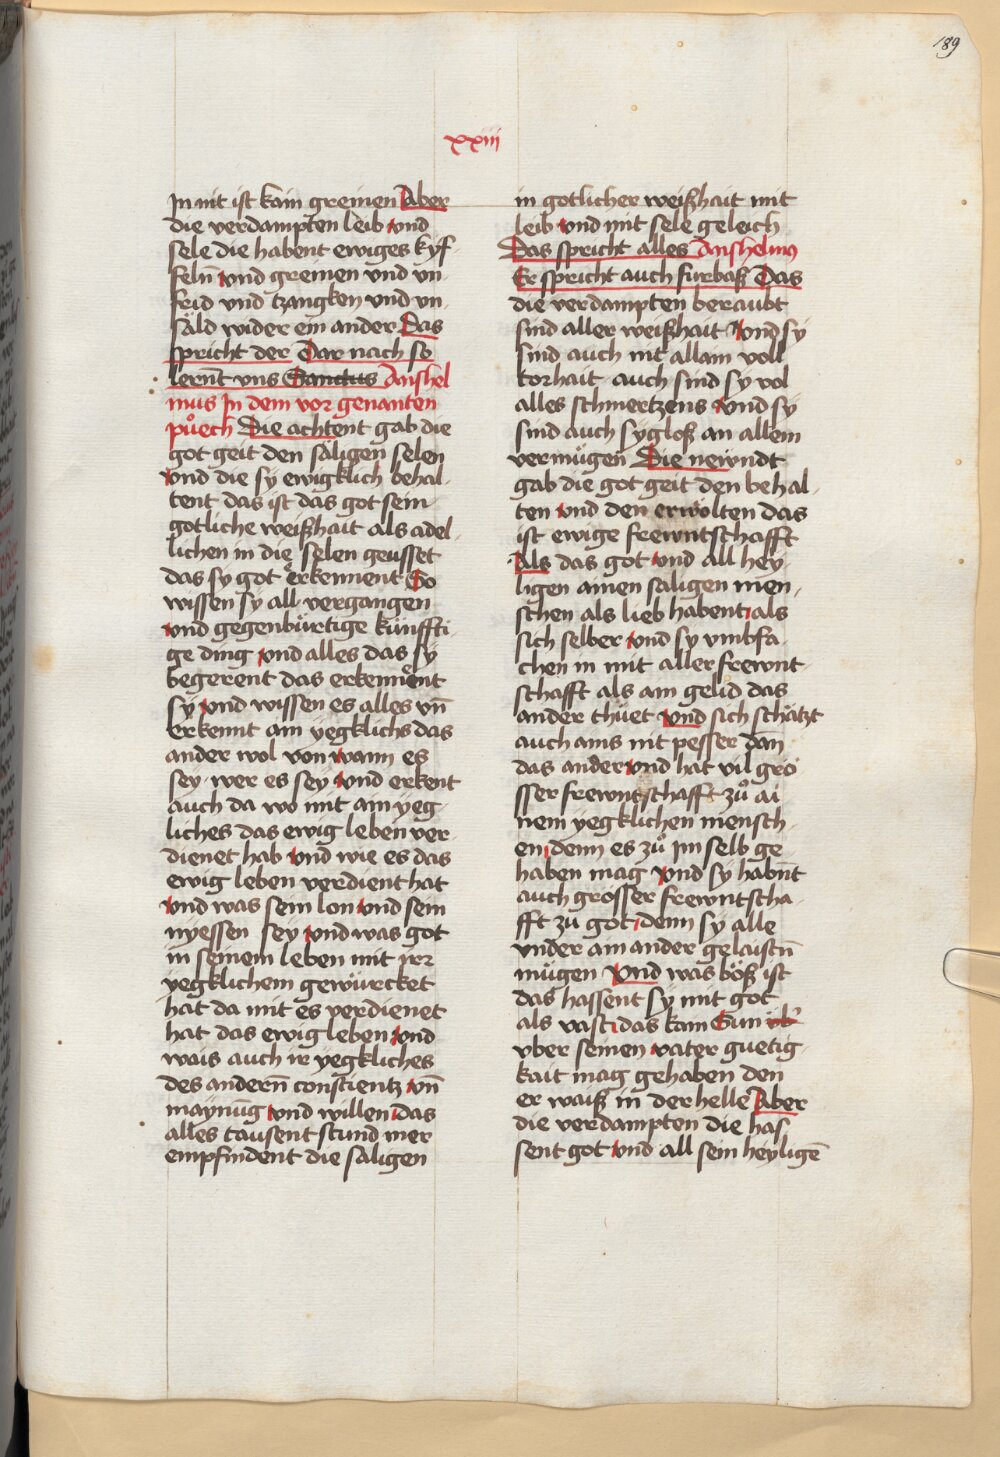 189
xxiii
In nit ist kain greinen Aber
die verdampten leib vnd
sele die habent ewiges kyf
felñ vnd greinen vnd vn
frid vnd tzangken vnd vn
såld wider ein ander Das
spricht der Dar nach so
lernt̄ vns Sanctus Anshel
mus In dem vor genanten
půech Die achtent gab die
got geit den såligen selen
vnd die sy ewigklich behal
tent das ist das got sein
gotliche weißhait als adel
lichen in die selen geusset
das sy got erkennent So
wissen sy all vergangen
vnd gegenbürtige künffti
ge ding vnd alles das sy
begerent das erkennent
sy vnd wissen es alles vñ
erkennt ain yegklichs das
ander wol von wann es
sey wer es sey vnd erkent
auch da wo mit ain yeg
liches das ewig leben ver
dienet hab vnd wie es das
ewig leben verdient hat
vnd was sein lon vnd sein
nyessen sey vnd was got
in seinem leben mit irr
yegklichem gewürcket
hat da mit es verdienet
hat das ewig leben vnd
wais auch ir yegkliches
des anderñ conscientz vñ
maynūg vnd willen das
alles tausent stund mer
empfindent die saligen
in gotlicher weißhait mit
leib vnd mit sele geleich
Das spricht alles Anshelmus
Er spricht auch furbaß Das
die verdampten beraubt
sind aller weißhait Vnd sy
sind auch mit allam voll
torhait auch sind sy vol
alles schmertzens vnd sy
sind auch sygloß an allem
vermügen Die newndt
gab die got geit den behal
ten vnd den erwölten das
ist ewige frewntschafft
Als das got vnd all hey
ligen ainen saligen men
schen als lieb habent als
sich selber vnd sy vmbfa
chen in mit aller frewnt
schafft als ain gelid das
ander thüet vnd sich schätzt
auch ains nit pesser dan̄
das ander vnd hat vil grö
sser frewntschafft zů ai
nem yegklichen mensch
en denn es zů im selb ge
haben mag vnd sy habn̄t
auch grosser frewntscha
fft zu got denn sy alle
vnder ain ander gelaistñ
mügen Vnd was böß ist
das hassent sy mit got
als vast das kain Sun
vber seinen vater guetig
kait mag gehaben den
er waiß in der helle Aber
die verdampten die has
sent got vnd all sein heyligē